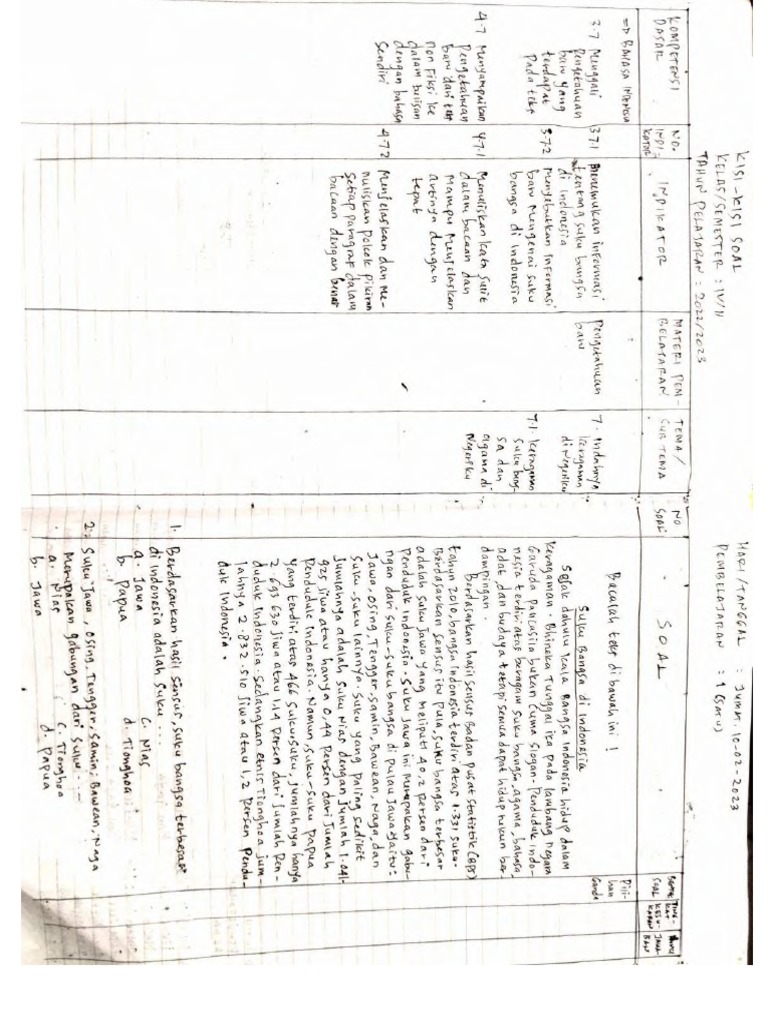 KISI-KISI SOAL
KELAS/SEMESTER : IV/II
TAHUN PELAJARAN : 2022/2023
HARI/TANGGAL : Jumat, 10-02-2023
PEMBELAJARAN : 1 (satu)
KOMPETENSI DASAR
NO. INDI-KATOR
INDIKATOR
MATERI PEM-BELAJARAN
TEMA/ SUB TEMA
NO SOAL
SOAL
=> BAHASA INDONESIA
3.7 Menggali
pengetahuan
baru yang
terdapat
pada teks
4.7 Menyampaikan
pengetahuan
baru dari teks
non fiksi ke
dalam tulisan
dengan bahasa
sendiri
3.7.1 Menemukan informasi
tentang suku bangsa
di Indonesia
3.7.2 Menyebutkan informasi
baru mengenai suku
bangsa di Indonesia
4.7.1 Menuliskan kata sulit
dalam bacaan dan
mampu menjelaskan
artinya dengan
tepat
4.7.2 Menjelaskan dan me-
nuliskan pokok pikiran
setiap paragraf dalam
bacaan dengan benar
Pengetahuan
baru
7. Indahnya
keragaman
di Negeriku
7.1. Keragaman
suku bang-
sa dan
agama di
Negeriku
Bacalah teks di bawah ini !
Suku Bangsa di Indonesia
Sejak dahulu kala Bangsa Indonesia hidup dalam
keragaman. Bhineka Tunggal ika pada lambang negara
Garuda Pancasila bukan Cuma slogan. Penduduk Indo-
nesia terdiri atas beragam suku bangsa, agama, bahasa,
adat, dan budaya tetapi semua dapat hidup rukun ber
dampingan.
Berdasarkan hasil sensus Badan pusat Statistik (BPS)
tahun 2010, bangsa Indonesia terdiri atas 1.331 suku.
Berdasarkan sensus itu pula, suku bangsa terbesar
adalah suku Jawa yang meliputi 40,2 persen dari
Penduduk Indonesia. Suku Jawa ini merupakan gabu-
ngan dari suku-suku bangsa di pulau Jawa yaitu:
Jawa, Osing, Tengger, Samin, Bawean, Naga, dan
suku-suku lainnya. Suku yang paling sedikit
jumlahnya adalah suku Nias dengan jumlah 1.041.
925 jiwa atau hanya 0,44 persen dari jumlah
penduduk Indonesia. Namun, suku-suku papua
yang terdiri atas 466 suku-suku, jumlahnya hanya
2.693.630 jiwa atau 1,14 persen dari jumlah Pen-
duduk Indonesia. Sedangkan etnis Tionghoa jum-
lahnya 2.832.510 jiwa atau 1,2 persen Pendu-
duk Indonesia.
1. Berdasarkan hasil sensus, suku bangsa terbesar
di Indonesia adalah suku ...
a. Jawa c. Nias
b. Papua d. Tionghoa
2. Suku Jawa, Osing, Tengger, Samin, Bawean, Naga
Merupakan gabungan dari suku ...
a. Nias c. Tionghoa
b. Jawa d. Papua
Pili-
han
Ganda